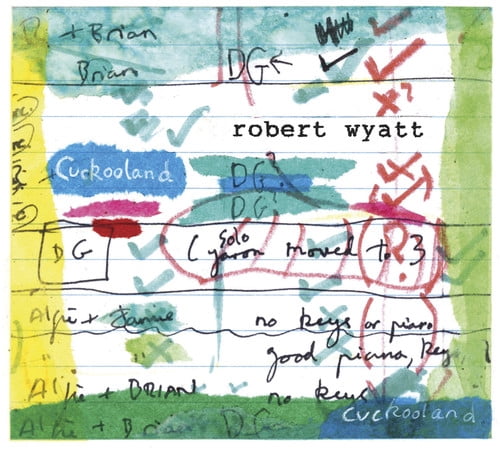 + Brian
Brian DG ←
x?
robert wyatt
Cuckooland
DG?
DG!
4
DG ( solo yaron moved to ? 3
Alfie + Jamie no keys or piano
" good piano, key
Alfie + BRIAN no keys
Alfie + Bria DG
Cuckooland